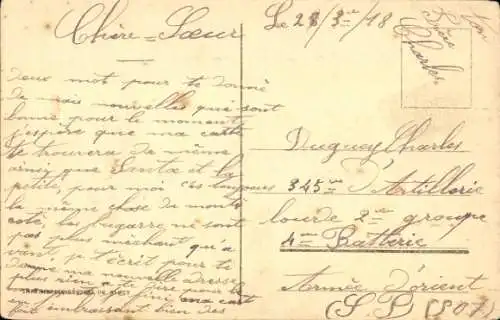 Chère = Sœur
Le 28/3me/18
ton
frère
Charles
deux mot pour te donné
de mais nouvelles qui sont
bonne pour le moment
j'espère que ma carte
te trouvera de même
ainsi que Santa et la
petite, pour moi c'es toujours
la même chose du monts
coté, les bugarre ne sont
pas plus méchant qu'a
vant, je t'écrit pour te
donné ma nouvelle adresse
plus rien a te dire pour le
fini ma cart
en embrassant bien des
Nuguey Charles
345me d'Artillerie
lourde 2me groupe
4me Batterie
Armée d'orient
(S P) (507)